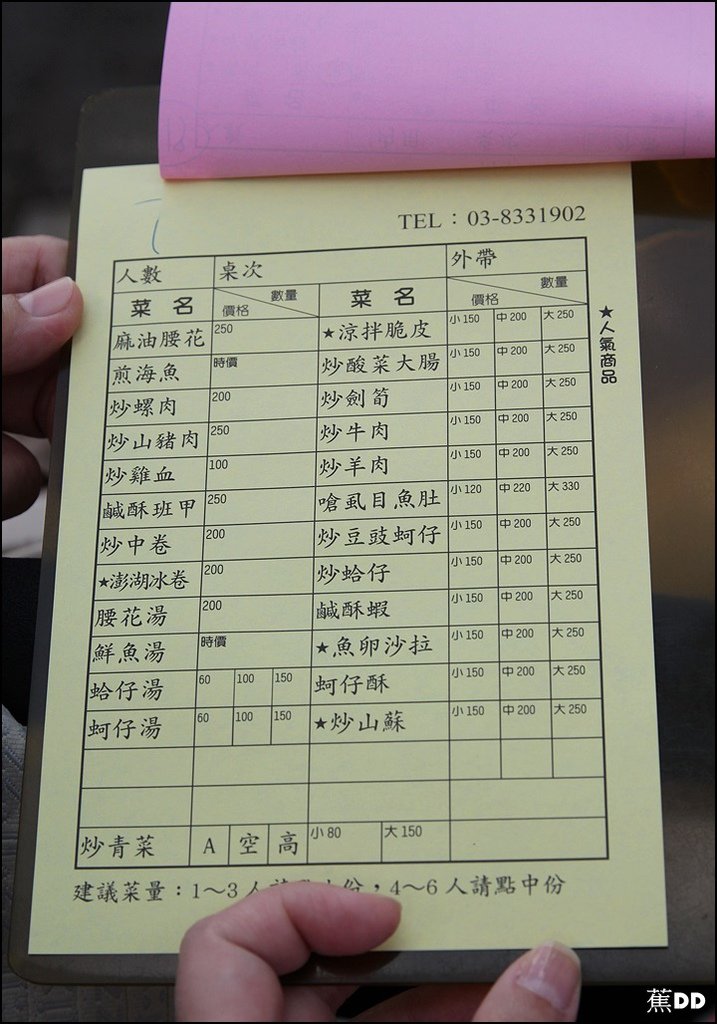 TEL：03-8331902
人數 桌次 外帶
菜名 價格 數量 菜名 價格 數量
麻油腰花 250 ★涼拌脆皮 小150 中200 大250
煎海魚 時價 炒酸菜大腸 小150 中200 大250
炒螺肉 200 炒劍筍 小150 中200 大250
炒山豬肉 250 炒牛肉 小150 中200 大250
炒雞血 100 炒羊肉 小150 中200 大250
鹹酥班甲 250 嗆虱目魚肚 小120 中220 大330
炒中卷 200 炒豆豉蚵仔 小150 中200 大250
★澎湖冰卷 200 炒蛤仔 小150 中200 大250
腰花湯 200 鹹酥蝦 小150 中200 大250
鮮魚湯 時價 ★魚卵沙拉 小150 中200 大250
蛤仔湯 60 100 150 蚵仔酥 小150 中200 大250
蚵仔湯 60 100 150 ★炒山蘇 小150 中200 大250
炒青菜 A 空 高 小80 大150
建議菜量：1～3人 份，4～6人請點中份
★人氣商品
蕉DD